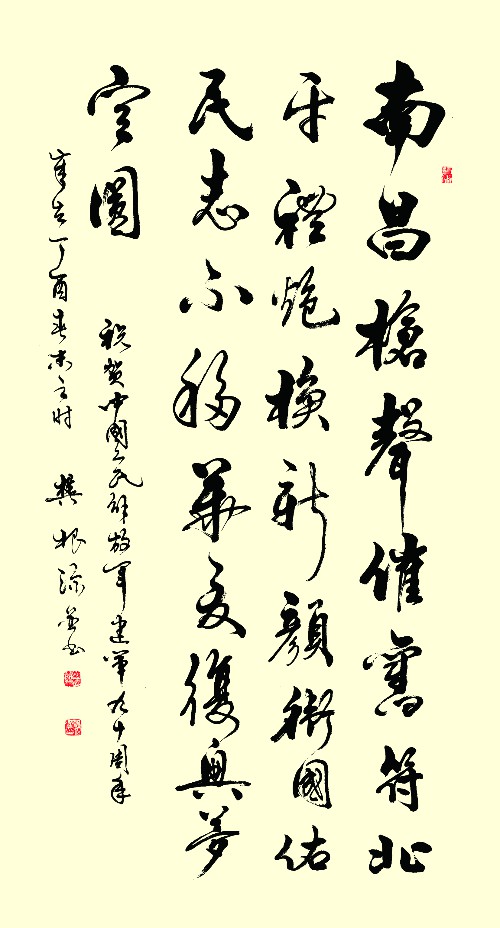 南昌槍聲催舊符北
平禮炮換新顏衛國佑
民志不移華夏復興夢
定圓
祝贺中國人民解放军建军九十周年
歲在丁酉春末之时